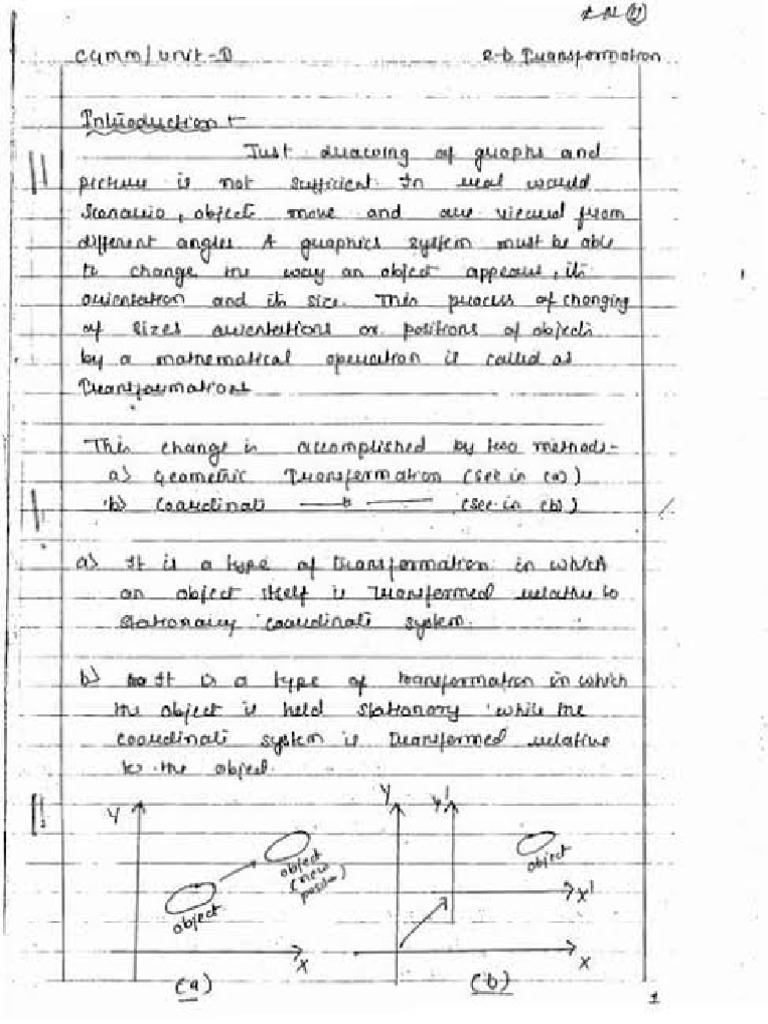 CGMM/Unit-II
2-D Transformation
Introduction :-
Just drawing of graphs and
picture is not sufficient. In real world
Scenario, objects move and are viewed from
different angles. A graphics system must be able
to change the way an object appears, its
orientation and its size. This process of changing
of sizes orientations or positions of objects
by a mathematical operation is called as
Transformations
This change is accomplished by two methods-
a) Geometric Transformation (see in (a))
b) Coordinate —"— (see in (b))
a) It is a type of transformation in which
an object itself is transformed relative to
stationary coordinate system.
b) It is a type of transformation in which
the object is held stationary while the
coordinate system is transformed relative
to the object.
Y
object
object
(new
X
(a)
Y Y'
object
X'
X
(b)
1